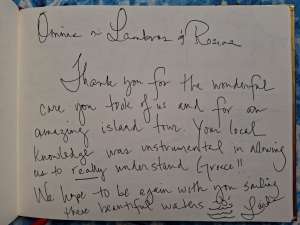 Lambros & Rosana
Thank you for the wonderful
care you took of us and for an
amazing island tour. Your local
knowledge was instrumental in allowing
us to really understand Greece!!
We hope to be again with you sailing
these beautiful waters